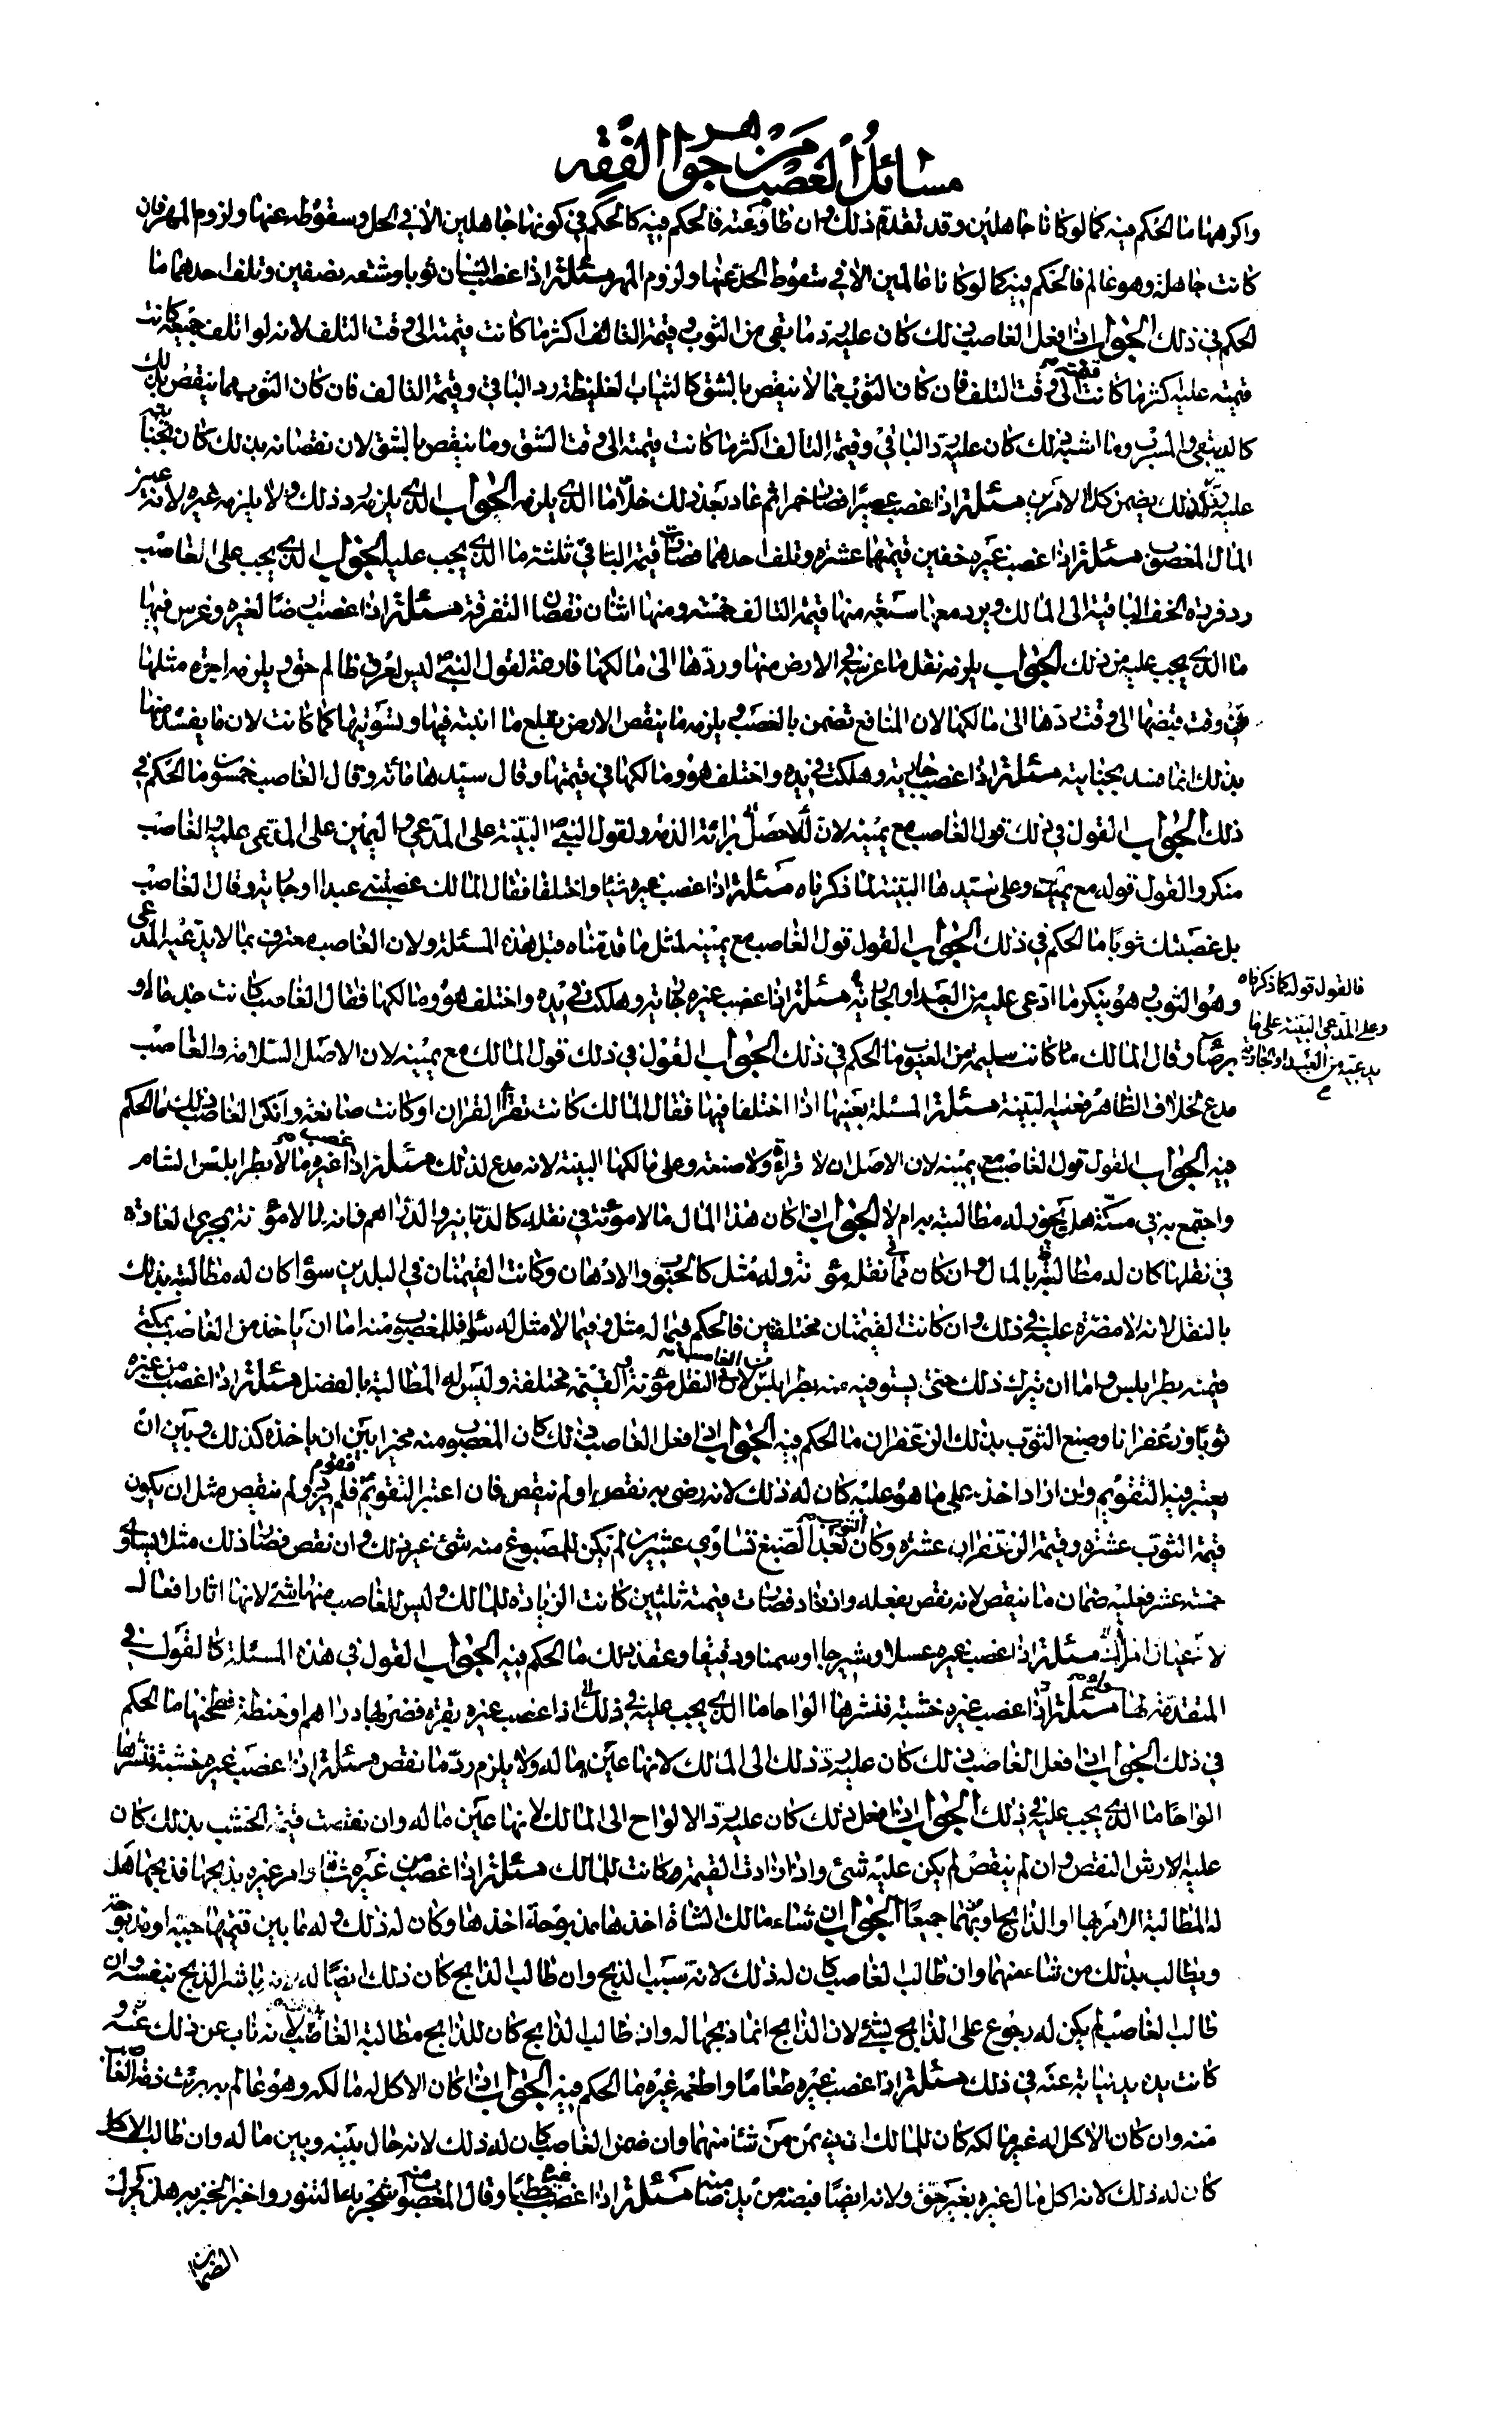 مسائل الغصب من جواهر الفقه
واكرهها ما الحكم فيه كما لو كانا جاهلين وقد تقدم ذلك وان طاوعته فالحكم فيه كالحكم في كونها جاهلين الا في الحل وسقوطه عنها ولزوم المهر فان
كانت جاهلة وهو عالم فالحكم فيه كما لو كانا عالمين الا في سقوط الحد عنها ولزوم المهر مسئلة اذا غصب انسان ثوبا وشقه بنصفين وتلف احدهما ما
الحكم في ذلك الجواب اذا فعل الغاصب ذلك كان عليه رد ما بقى من الثوب وقيمة التالف اكثر ما كانت قيمته الى وقت التلف لانه لو اتلف جميعه كانت
قيمته عليه اكثر ما كانت قيمته الى وقت التلف فان كان الثوب مما لا ينقص بالشق كالثياب الغليظة رد الباقي وقيمة التالف فان كان الثوب مما ينقص بذلك
كالدبيقى والمشرب وما اشبه ذلك كان عليه رد الباقي وقيمة التالف اكثر ما كانت قيمته الى وقت الشق وما ينقص بالشق لان نقصانه بذلك كان بجنايته
عليه فلذلك يضمن كلا الامرين مسئلة اذا غصب عصيرا فصار خمرا ثم عاد بعد ذلك خلا ما الذى يلزمه الجواب الذى يلزمه رد ذلك ولا يلزمه غيره لانه عين
المال المغصوب مسئلة اذا غصب غيره خفين قيمتهما عشرة وتلف احدهما فصارت قيمة الباقي ثلثة ما الذى يجب عليه الجواب الذى يجب على الغاصب
رد فردة الخف الباقية الى المالك ويرد معها سبعة منها قيمة التالف خمسة ومنها اثنان نقصان التفرقة مسئلة اذا غصب ارضا لغيره وغرس فيها
ما الذى يجب عليه من ذلك الجواب يلزمه نقل ما غرز في الارض منها وردها الى مالكها فارغة لقول النبى ص ليس لعرق ظالم حق ويلزمه اجرة مثلها
من وقت قبضها الى وقت ردها الى مالكها لان المنافع تضمن بالغصب ويلزمه ما ينقص الارض بقلع ما انبته فيها وتسويتها كما كانت لان ما يفسد منها
بذلك انما فسد بجنايته مسئلة اذا غصب جارية وهلكت في يده واختلف هو ومالكها في قيمتها وقال سيدها مائة وقال الغاصب خمسون ما الحكم في
ذلك الجواب القول في ذلك قول الغاصب مع يمينه لان الاصل برائة الذمة ولقول النبى ص البينة على المدعى واليمين على المدعى عليه والغاصب
منكر والقول قوله مع يمينه وعلى سيدها البينة لما ذكرناه مسئلة اذا غصب غيره شيئا واختلفا فقال المالك غصبتنى عبدا او جارية وقال الغاصب
بل غصبتك ثوبا ما الحكم في ذلك الجواب القول قول الغاصب مع يمينه لمثل ما قدمناه قبل هذه المسئلة ولان الغاصب معترف بما لا يدعيه المدعى
وهو الثوب وهو ينكر ما ادعى عليه من العبد او الجارية مسئلة اذا غصب غيره جارية وهلكت في يده واختلف هو ومالكها فقال الغاصب كانت جذماء او
فالقول قوله كما ذكرناه
وعلى المدعى البينة على ما
يدعيه من العبد او الجارية
برصاء وقال المالك ما كانت سليمة من العيوب ما الحكم في ذلك الجواب القول في ذلك قول المالك مع يمينه لان الاصل السلامة والغاصب
مدع لخلاف الظاهر فعليه البينة مسئلة المسئلة بعينها اذا اختلفا فيها فقال المالك كانت تقرأ القران او كانت صانعة وانكر الغاصب ذلك ما الحكم
فيه الجواب القول قول الغاصب مع يمينه لان الاصل ان لا قراءة ولا صنعة وعلى مالكها البينة لانه مدع لذلك مسئلة اذا غصب غيره مالا بطرابلس الشام
واجتمع به في مكة هل يجوز له مطالبته به ام لا الجواب اذا كان هذا المال مما لا مؤنة في نقله كالدنانير والدراهم فانه لا مؤنة تجرى العادة
في نقلها كان له مطالبته بالمال وان كان في نقله مؤنة وله مثل كالحبوب والادهان وكانت القيمتان في البلدين سواء كان له مطالبته بذلك
بالنقل لانه لا مضرة عليه في ذلك وان كانت القيمتان مختلفين فالحكم فيما له مثل وفيما لا مثل له سواء فللمغصوب منه اما ان ياخذ من الغاصب بمكة
قيمته بطرابلس واما ان يترك ذلك حتى يستوفيه من الغاصب بطرابلس لان في النقل مؤنة والقيمة مختلفة وليس له المطالبة بالفضل مسئلة اذا غصب من غيره
ثوبا وزعفرانا وصبغ الثوب بذلك الزعفران ما الحكم فيه الجواب اذا فعل الغاصب ذلك كان المغصوب منه مخيرا بين ان ياخذه كذلك وبين ان
يعتبر فيه التقويم وان اراد اخذه على ما هو عليه كان له ذلك لانه رضى به نقص او لم ينقص فان اعتبر التقويم قوم فلم يزد ولم ينقص مثل ان يكون
قيمة الثوب عشرة وقيمة الزعفران عشرة وكان الثوب بعد الصبغ تساوى عشرين لم يكن للمصبوغ منه شئ غير ذلك وان نقص فصار ذلك مثل يساوى
خمسة عشر فعليه ضمان ما ينقص لانه نقص بفعله وان زاد فصارت قيمته ثلثين كانت الزيادة للمالك وليس للغاصب منها شئ لانها اثار افعال
لا اعيان اموال مسئلة اذا غصب غيره عسلا وشيرجا او سمنا ودقيقا وعقد ذلك ما الحكم فيه الجواب القول في هذه المسئلة كالقول في
المتقدمة لها مسئلة اذا غصب غيره خشبة فنشرها الواحا ما الذى يجب عليه في ذلك اذا غصب غيره نقرة فضربها دراهم او حنطة فطحنها ما الحكم
في ذلك الجواب اذا فعل الغاصب ذلك كان عليه رد ذلك الى المالك لانها عين ماله ولا يلزم رد ما نقص مسئلة اذا غصب غيره خشبة فنشرها
الواحا ما الذى يجب عليه في ذلك الجواب اذا فعل ذلك كان عليه رد الالواح الى المالك لانها عين ماله وان نقصت قيمة الخشب بذلك كان
عليه الارش النقص وان لم ينقص لم يكن عليه شئ واذا زادت القيمة كانت للمالك مسئلة اذا غصب من غيره شاة وامر غيره بذبحها فذبحها هل
له المطالبة الامر بها او الذابح او بهما جميعا الجواب ان شاء مالك الشاة اخذها مذبوحة اخذها وكان له ذلك وله ما بين قيمتها حية او مذبوحة
ويطالب بذلك من شاء منهما وان طالب الغاصب كان له ذلك لانه سبب الذبح وان طالب الذابح كان ذلك ايضا له لانه باشر الذبح بنفسه وان
طالب الغاصب لم يكن له رجوع على الذابح بشئ لان الذابح انما ذبحها له وان طالب الذابح كان للذابح مطالبة الغاصب لانه ناب عن ذلك عنه و
كانت يده يد نيابة عنه في ذلك مسئلة اذا غصب غيره طعاما واطعمه غيره ما الحكم فيه الجواب اذا كان الاكل له مالكه وهو عالم به برئت ذمة الغاصب
منه وان كان الاكل له غير مالكه كان للمالك ان يضمن من شاء منهما وان ضمن الغاصب كان له ذلك لانه حال بينه وبين ماله وان طالب الاكل
كان له ذلك لانه اكل مال غيره بغير حق ولانه ايضا قبضه من يد ضامنة مسئلة اذا غصب غيره حطبا وقال المغصوب منه اسجر به التنور واخبز الخبز به هل يزول
الضمان